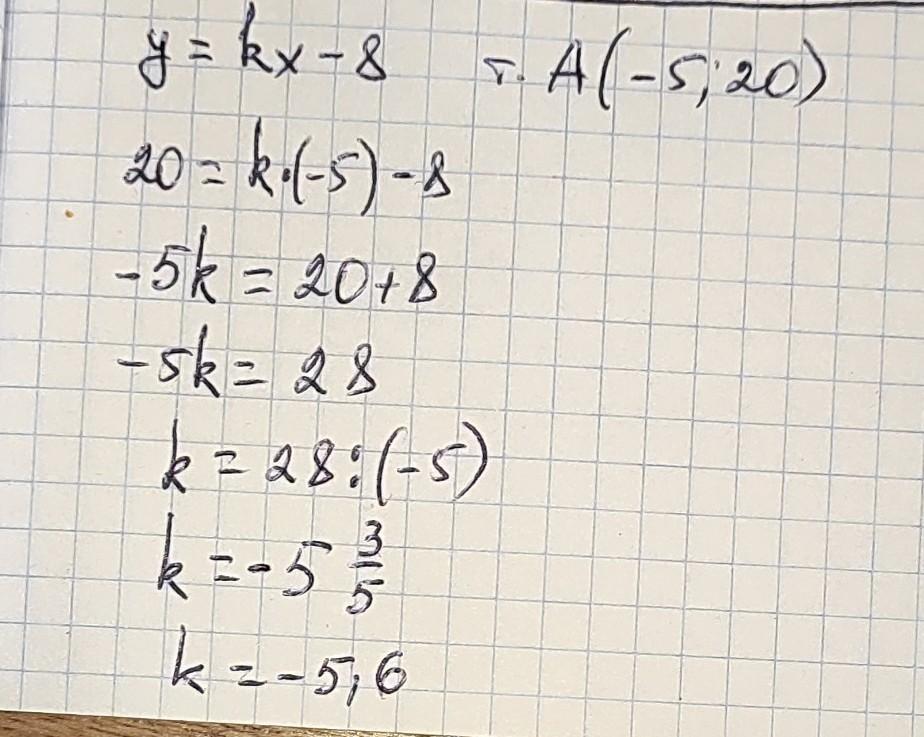 y = kx - 8 т. A(-5; 20)
20 = k·(-5) - 8
-5k = 20+8
-5k = 28
k = 28:(-5)
k = -5 3/5
k = -5,6